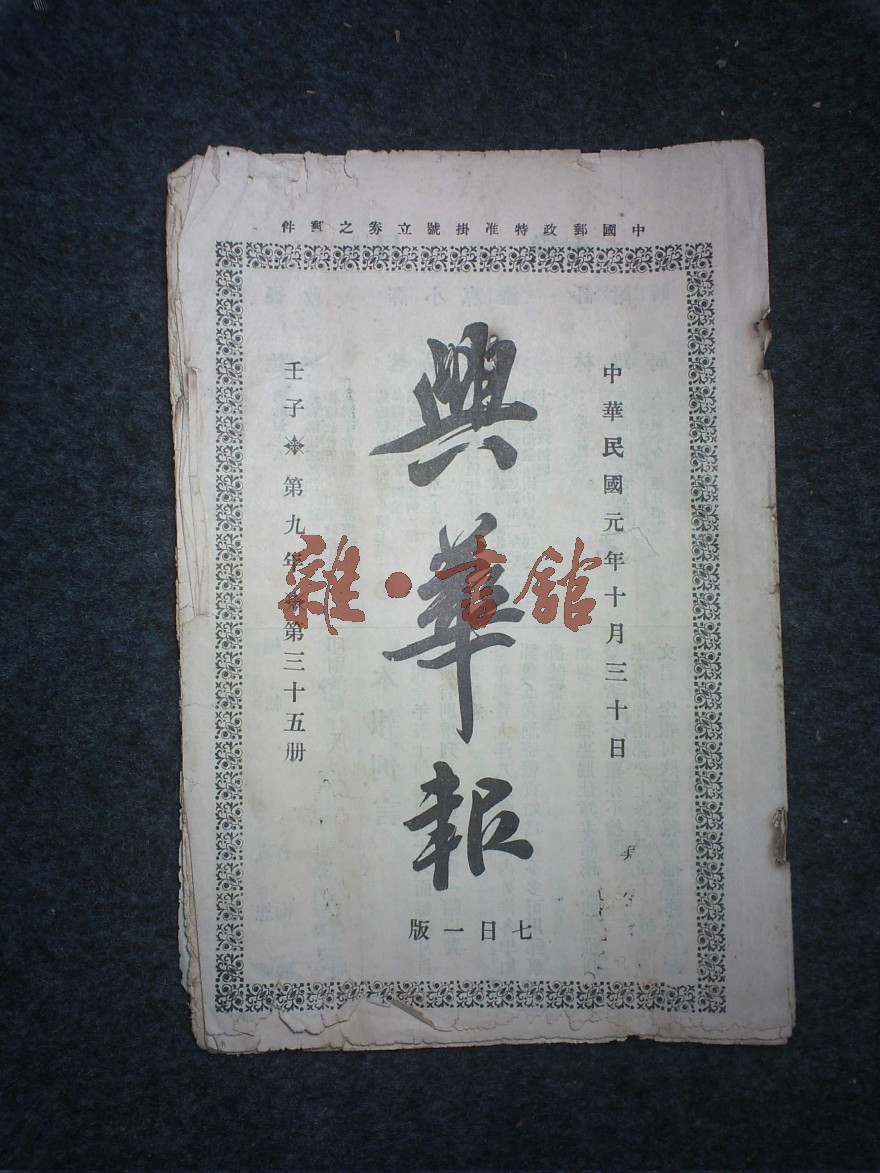 中國郵政特准掛號立劵之郵件
中華民國元年十月三十日
興華報
壬子 第九年 第三十五册
七日一版
雜·書館